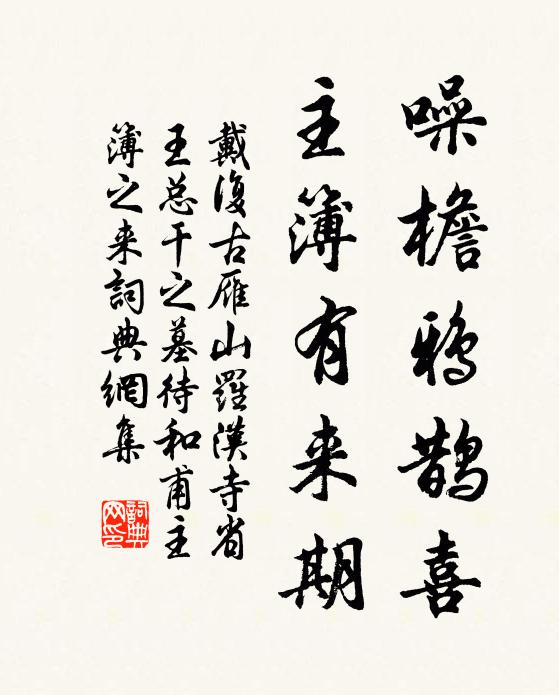 噪檐鸦鹊喜
主簿有来期
戴復古雁山羅漢寺省
王总干之墓待和甫主
簿之来詞典網集
詞典网印